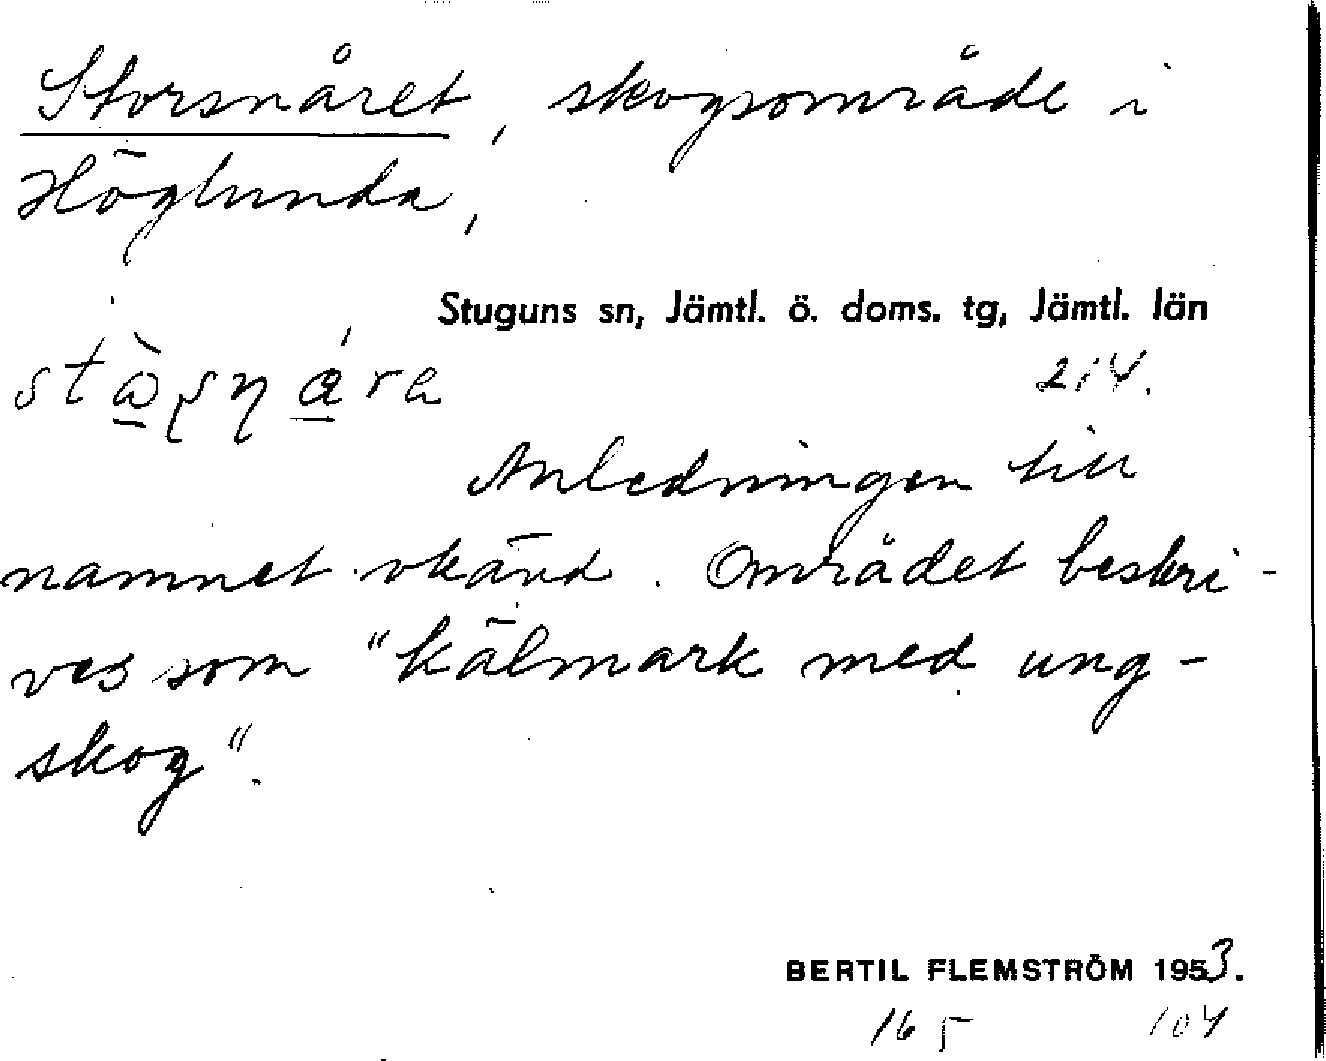 Storsnåret, skogsområde i
Höglunda,
Stuguns sn, Jämtl. ö. doms. tg, Jämtl. län
214.
Anledningen till
namnet okänd. Området beskri-
ves som "kälmark med ung-
skog".
BERTIL FLEMSTRÖM 1953.
165 104